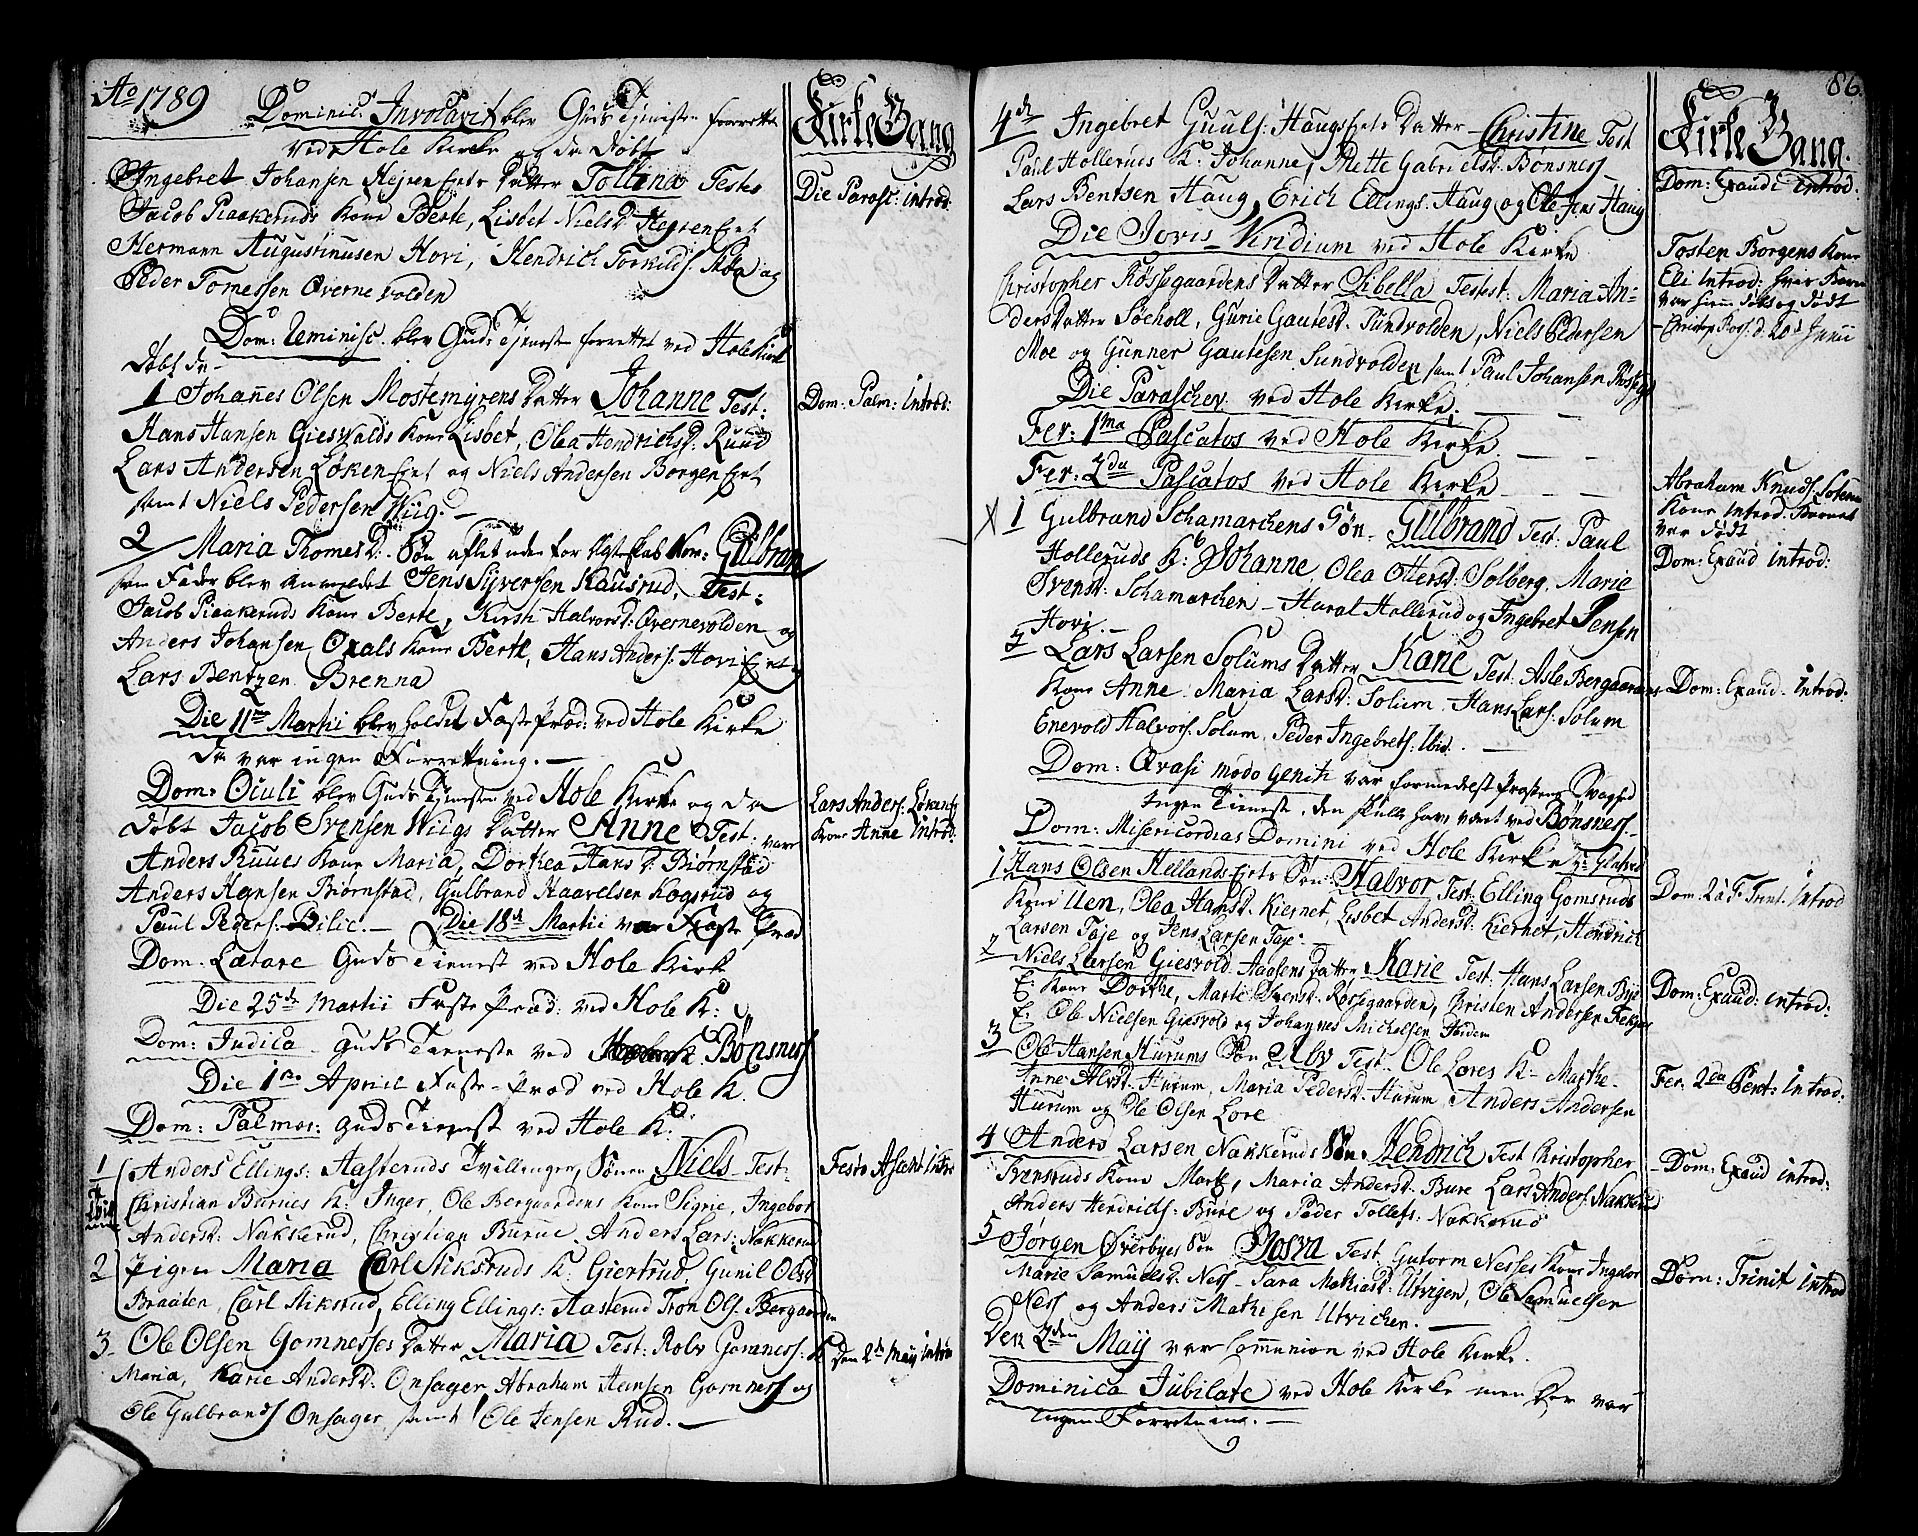 Ao 1789
Dominic: Invocavit blev Guds Tjeneste forrettet
ved Hole Kirke og da Døbt
Ingebret Johansen Hejren Eets Datter Tollena Testes
Jacob Piaakeruds Kone Berte, Lisbet Nielsd Hejren Eet
Hermann Augustinusen Hovi, Hendrich Torkilds. Moe og
Peder Tomessen Øverne volden
Dom: Reminisc. blev Guds Tjeneste forrettet ved Hole Kirk
Døbt da
1 Johanes Olsen Mostemyrens Datter Johanne Test:
Hans Hansen Giesvalds Kone Lisbet, Olea Hendrichsd. Ruud
Lars Andersen Løken Eet og Niels Andersen Borgen Eet
samt Niels Pedersen Wiig.
2 Maria Thomesd. Søn aflet uden for Egteskab Nom: Gulbran
som Fader blev anmeldet Jens Syversen Kausrud, Test:
Jacob Piaakeruds Kone Berte, Kirsti Halvorsd. Øvernevolden og
Anders Johansen Oxals Kone Berte, Hans Anders. Hovi Eet
Lars Bentzen Brenna
Die 11te Martii blev holdet Faste Præd: ved Hole Kirke
da var ingen Forretning.
Dom: Oculi blev Guds Tjeneste ved Hole Kirke og da
døbt Jacob Svensen Wiigs Datter Anne Test. vare
Anders Ruues Kone Maria, Dorthea Hans D. Biørnstad
Anders Hansen Biørnstad, Gulbrand Haavelsen Kogsrud og
Paul Peders. Bilie. Die 18de Martii var Faste Præd
Dom: Lætare Guds Tieneste ved Hole Kirk
Die 25de Martii Faste Præd: ved Hole K:
Dom: Judica Guds Tieneste ved Bønsness
Die 1te April Faste Præd ved Hole K.
Dom: Palmar: Guds Tieneste ved Hole K:
1 Anders Ellings: Aasteruds Tvillinger, Sønen Niels Test:
Christian Burues K: Inger, Ole Bergaardens Kone Sigrie, Ingebor
Andersd. Nakkerud, Christian Burue. Anders Lars: Nakkerud
2 Pigen Maria Carl Stiksruds K: Giertrud, Gunil Olsd
Braaten, Carl Stiksrud, Elling Ellings: Aasterud Tron Ols. Bergaarden
3 Ole Olsen Gomnesses Datter Maria Test: Rolv Gomness: K
Maria, Karie Andersd. Onsager Abraham Hansen Gomness og
Ole Gulbrands Onsager, samt Ole Jensen Rud.
Kirke Gang
Die Parasc: introd:
Dom: Palm: Introd:
Lars Anders. Løken
Kone Anne Introd:
Festo Ascens Intro
Den 2de May intro
86
4de Ingebret Guuls: Haugs Eets Datter Christine Test
Paul Holleruds K: Johanne, Mette Gabrielsd. Bønsness
Lars Bentsen Haug, Erich Ellings. Haug og Ole Jens Haug
Die Jovis Viridium ved Hole Kirke
Christopher Røssegaardens Datter Libella Testest: Maria An-
dersdatter Søeholl, Gurie Gautesd. Sundvolden, Niels Pedersen
Moe og Gunner Gautesen Sundvolden samt Paul Johansen
Die Paraschev. ved Hole Kirke.
Fer: 1ma Pascatos ved Hole Kirke.
Fer: 2da Pascatos ved Hole Kirke
X 1 Gulbrand Schamarchens Søn Gulbrand Test: Paul
Holleruds K: Johanne, Olea Ottersd. Solberg, Marie
Svensd. Schamarchen Haral Hollerud og Ingebret Jensen
Hovi.
2 Lars Larsen Solums Datter Karie Test: Asle Bergaardens
Kone Anne. Maria Larsd. Solum. Hans Lars. Solum
Enevold Halvors. Solum, Peder Ingebrets. Ibid.
Dom: Qvasi modo geniti var formedelst Præstens Svaghed
Ingen Tieneste, den skulle have vært ved Bønsness
Dom: Misericordias Domini ved Hole Kirke
1 Hans Olsen Hellands Eets Søn: Halvor, Test: Elling Gomsruds
Kone Uen, Olea Hansd. Kiernet, Lisbet Andersd. Kiernet, Hendrich
Larsen Taje og Jens Larsen Taje.
2 Niels Larsen Giesvold Aasens Datter Karie Test: Hans Larsen Bye
E: Kone Dorthe, Marte Svensd. Røssegaarden, Kristen Andersen
E: Ole Nielsen Giesvold og Johannes Michelsen Ibidem
3 Ole Hansen Hurums Søn Alv Test. Ole Løres K: Marthe
Anne Alvsd. Hurum, Maria Pedersd. Hurum, Anders Andersen
Hurum og Ole Olsen Løre
4 Anders Larsen Nakkeruds Søn: Hendrich Test Christopher
Svensruds Kone Marte, Maria Andersd. Bure Lars Anders. Nakkerud
Anders Hendrichs. Bure og Peder Tollefs: Nakkerud
5 Jørgen Øverbyes Søn Test. Gutorm Nesses Kone Ingebor
Marie Samuelsd. Ness Sara Mathiasd. Utvigen, Ole Samuelsen
Ness og Anders Mathisen Utvichen.
Den 2den May var Communion ved Hole Kirke.
Dominica Jubilate ved Hole Kirke men der var
Ingen Forretning.
Kirke Gang.
Dom: Exaudi introd:
Tosten Borgens Kone
Eli Introd: hvis Barn
var hieme døbt og dødt
Christop. Ross. d. 20d Junii
Abraham Knuds.
Kone Introd. Barnet
var dødt
Dom: Exaud introd:
Dom: Exaud. Introd:
Dom 2da p. Trint. Introd
Dom: Exaud: introd:
Fer. 2da Pent: Introd:
Dom: Exaud introd:
Dom: Trinit introd